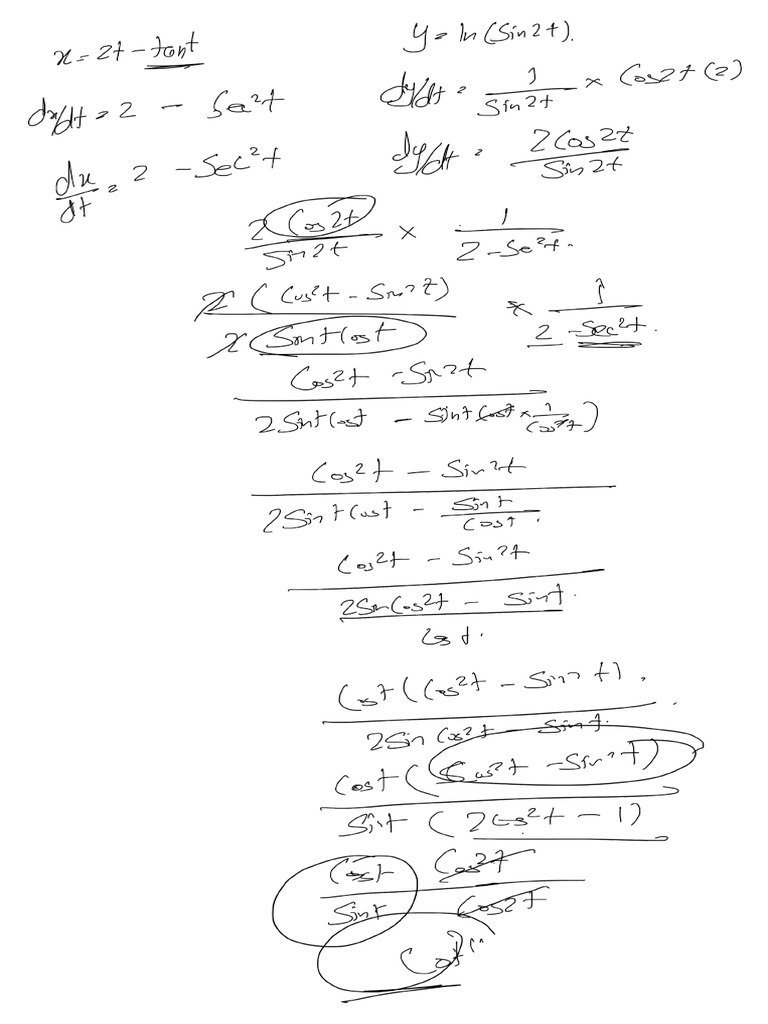 x = 2t - tant
dx/dt = 2 - Sec²t
dx/dt = 2 - Sec²t
y = ln(Sin2t).
dy/dt = 1/Sin2t × Cos2t (2)
dy/dt = 2Cos2t/Sin2t
2 Cos2t/Sin2t × 1/2 - Sec²t.
2 (Cos²t - Sin²t)/2 Sint Cost × 1/2 - Sec²t.
Cos²t - Sin²t/2Sint Cost - Sint Cost × 1/Cos²t)
Cos²t - Sin²t/2Sint Cost - Sint/Cost.
Cos²t - Sin²t/2SinCos²t - Sint./Cost.
Cost (Cos²t - Sin²t)./2Sin Cos²t - Sint.
Cost (Cos²t - Sin²t)/Sint (2Cos²t - 1)
Cost Cos2t/Sint Cos2t
Cot